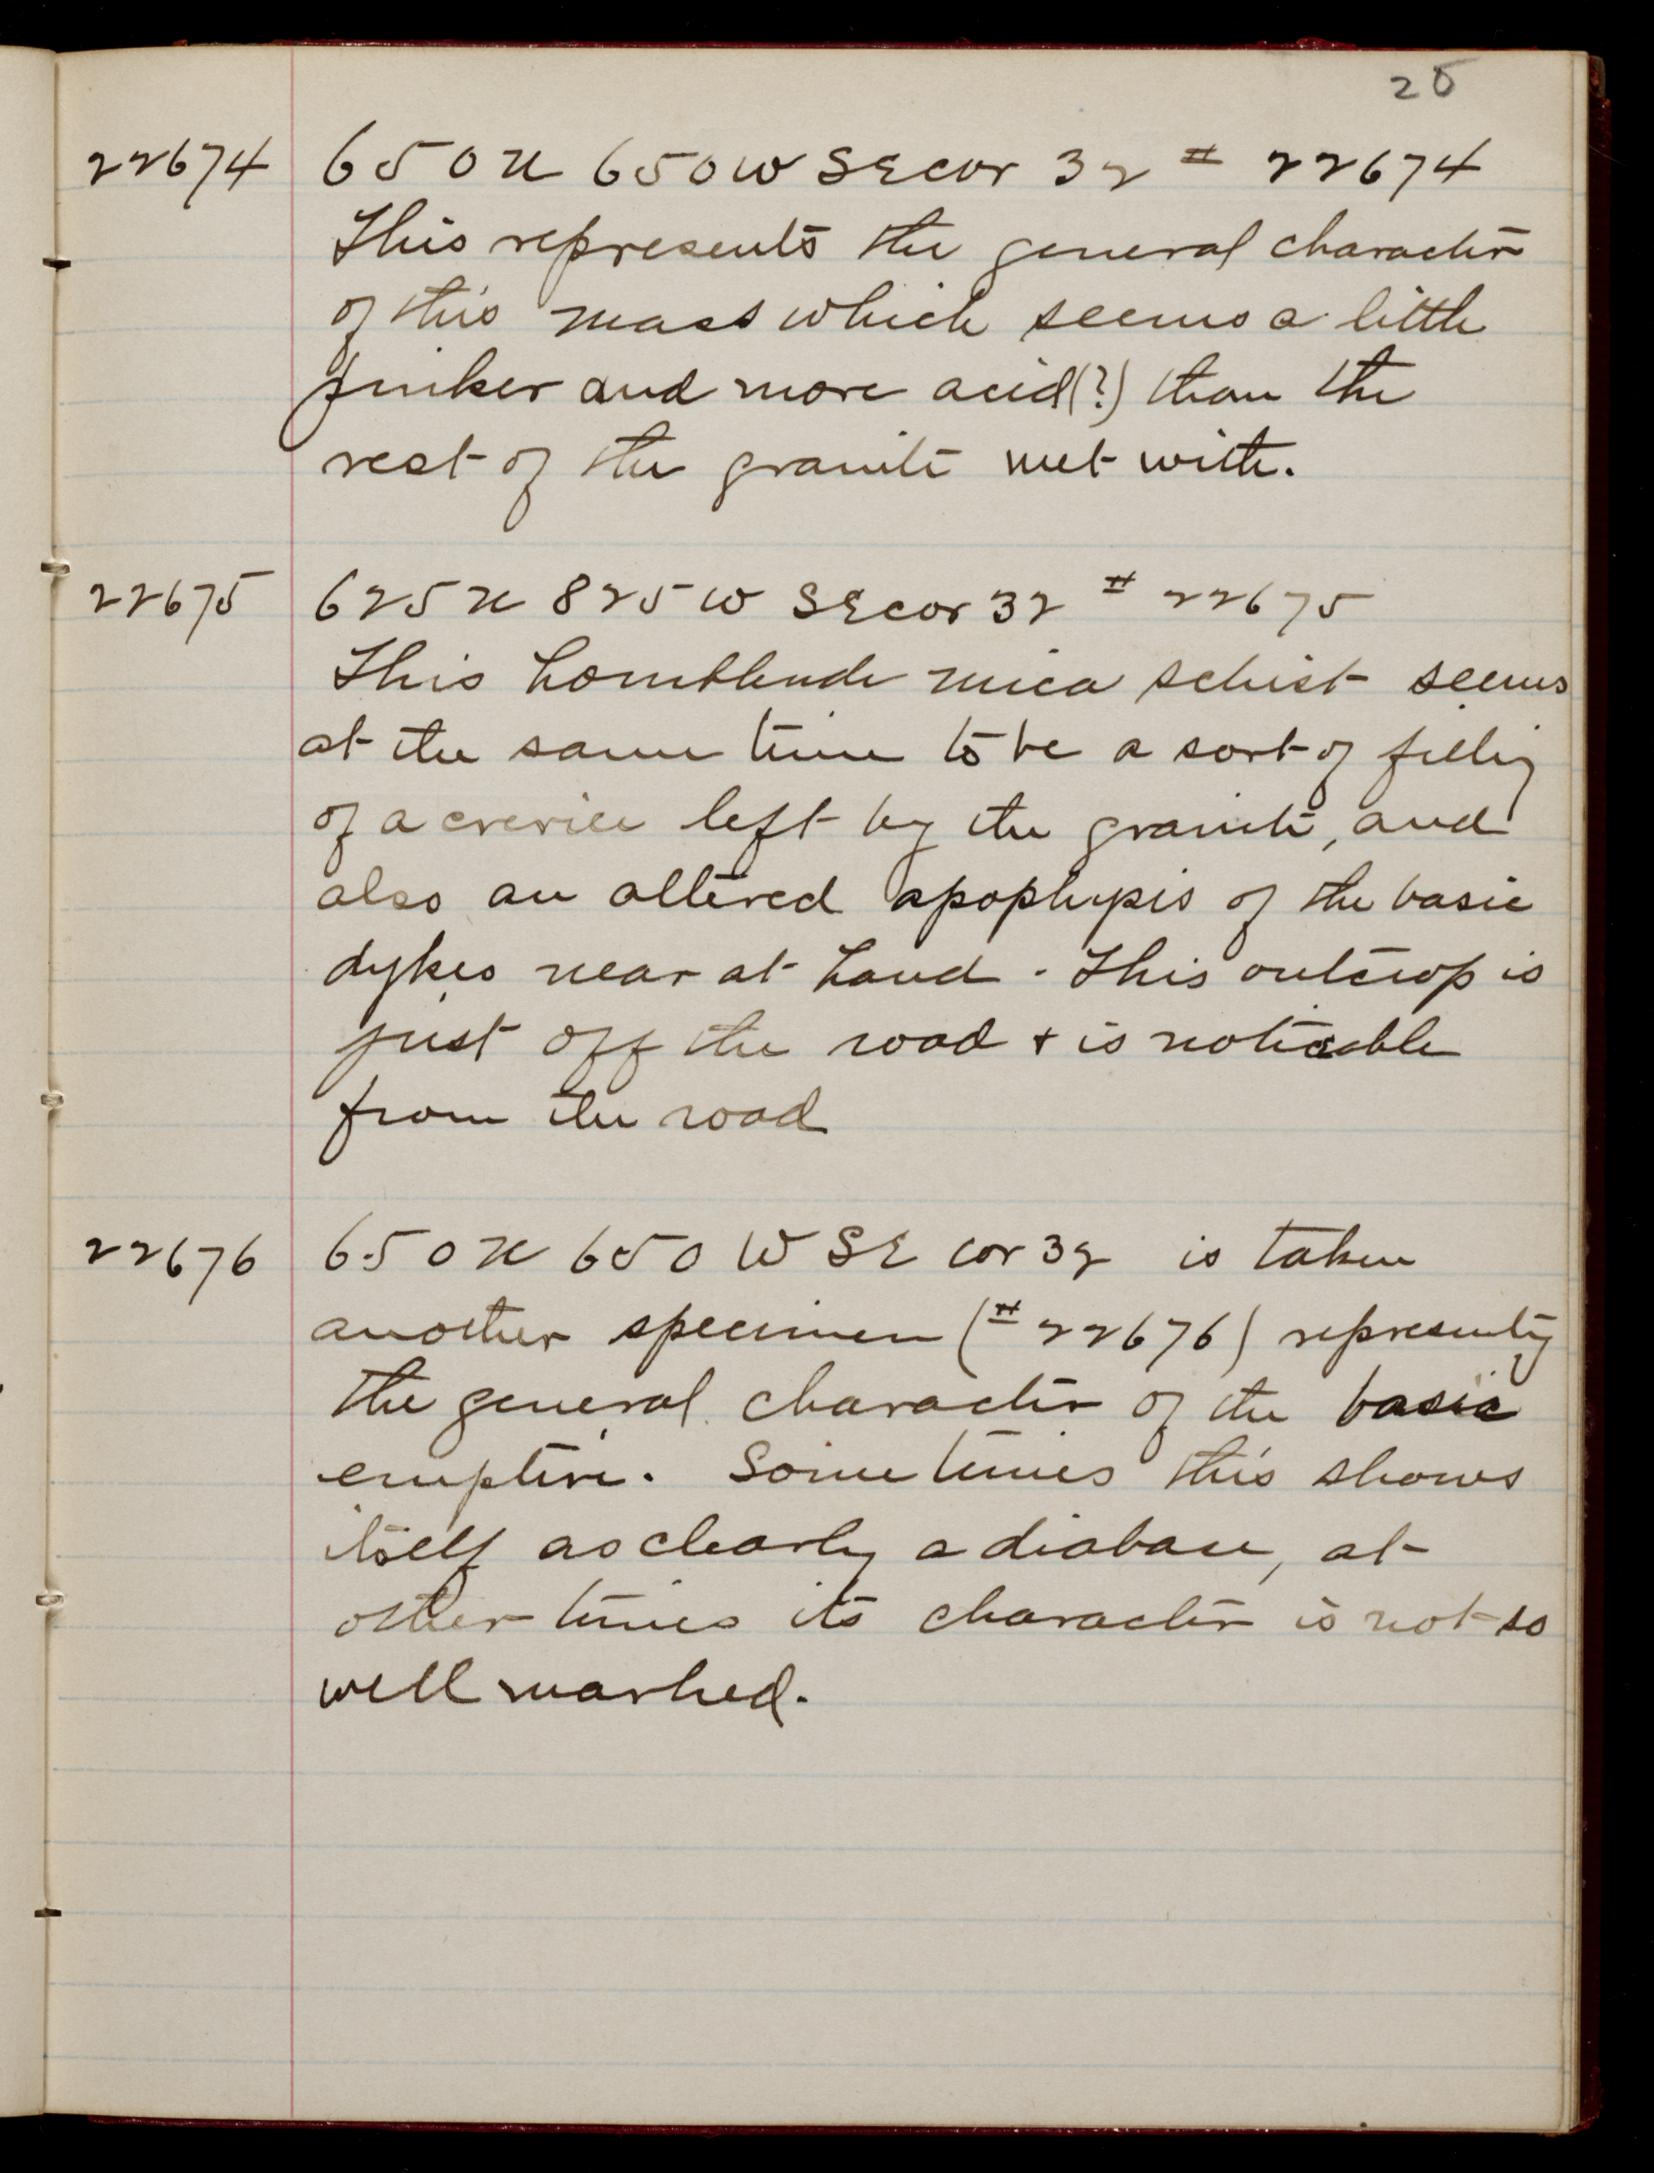 25
22674 650 N 650 W SE cor 32 # 22674
This represents the general character
of this mass which seems a little
pinker and more acid(?) than the
rest of the granite met with.
22675 625 N 825 W SE cor 32 # 22675
This hornblende mica schist seems
at the same time to be a sort of filling
of a crevice left by the granite, and
also an altered apophysis of the basic
dykes near at hand. This outcrop is
just off the road + is noticeable
from the road
22676 650 N 650 W SE cor 32 is taken
another specimen (# 22676) representing
the general character of the basic
eruptive. Sometimes this shows
itself as clearly a diabase, at
other times its character is not so
well marked.